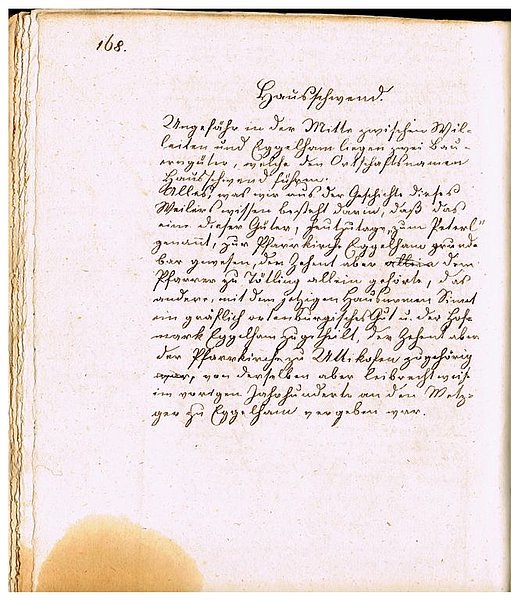 168.
Hausschwend.
Ungefähr in der Mitte zwischen Weil-
leiten und Eggelham liegen zwei Bau-
erngüter, welche den Ortschaftsnamen
Hausschwend führen.
Alles, was wir aus der Geschichte dieses
Weilers wissen besteht darin, daß das
eine dieser Güter, heutzutage „zum Peterl“
genannt, zur Pfarrkirche Eggelham grund-
bar gewesen, der Zehent aber allein dem
Pfarrer zu Tölling allein gehörte, das
andere, mit dem jetzigen Hausnamen
ein gräflich ortenburgisches Gut u. der Hof-
mark Eggelham zugetheilt, der Zehent aber
der Pfarrkirche zu Uttikofen zugehörig
war, von derselben aber leibrechtweise
im vorigen Jahrhunderte an den Metz-
ger zu Eggelham vergeben war.